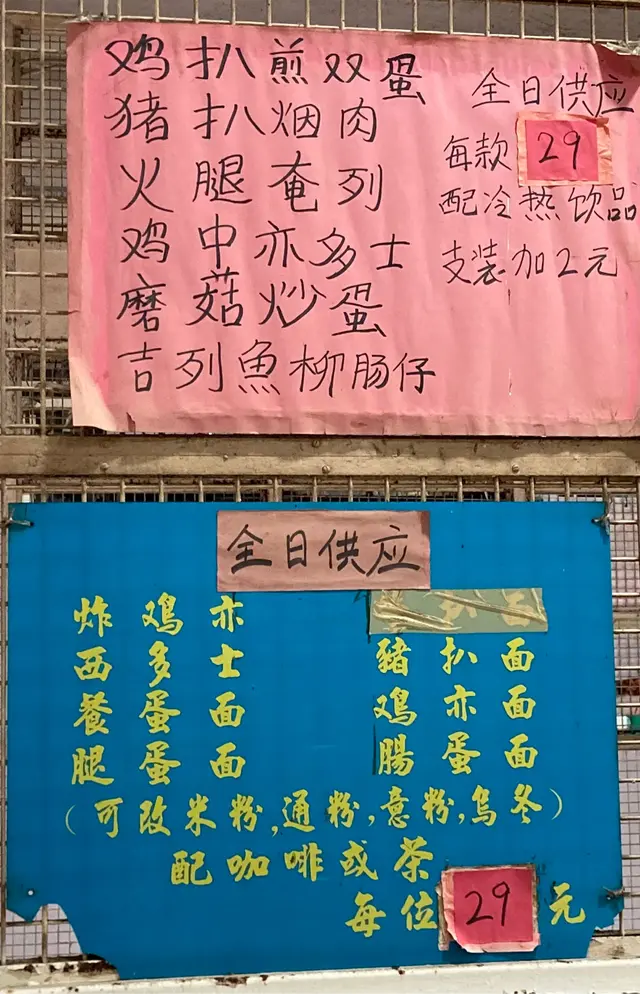 鸡扒煎双蛋
猪扒烟肉
火腿奄列
鸡中亦多士
磨菇炒蛋
吉列魚柳肠仔
全日供应
每款29
配冷热饮品
支装加2元
全日供应
炸鸡亦
西多士
餐蛋面
腿蛋面
豬扒面
鸡亦面
腸蛋面
(可改米粉,通粉,意粉,乌冬)
配咖啡或茶
每位29元